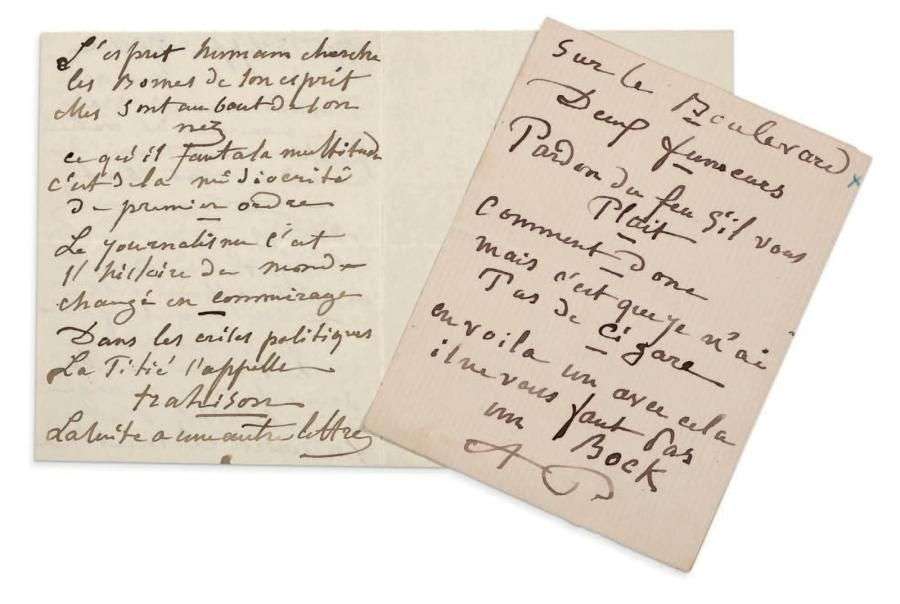 L'esprit humain cherche
les Bornes de son esprit
elles sont au bout de son
nez
ce qu'il faut a la multitude
c'est de la médiocrité
de premier ordre
Le journalisme c'est
l'histoire du monde
changé en commérage
Dans les crises politiques
La Pitié s'appelle
trahison
La suite a une autre lettre
Sur le Boulevard
Deux fumeurs
Pardon du feu s'il vous
Plait
Comment donc
mais c'est que je n'ai
Pas de cigare
en voila un avec cela
il ne vous faut pas
un Bock